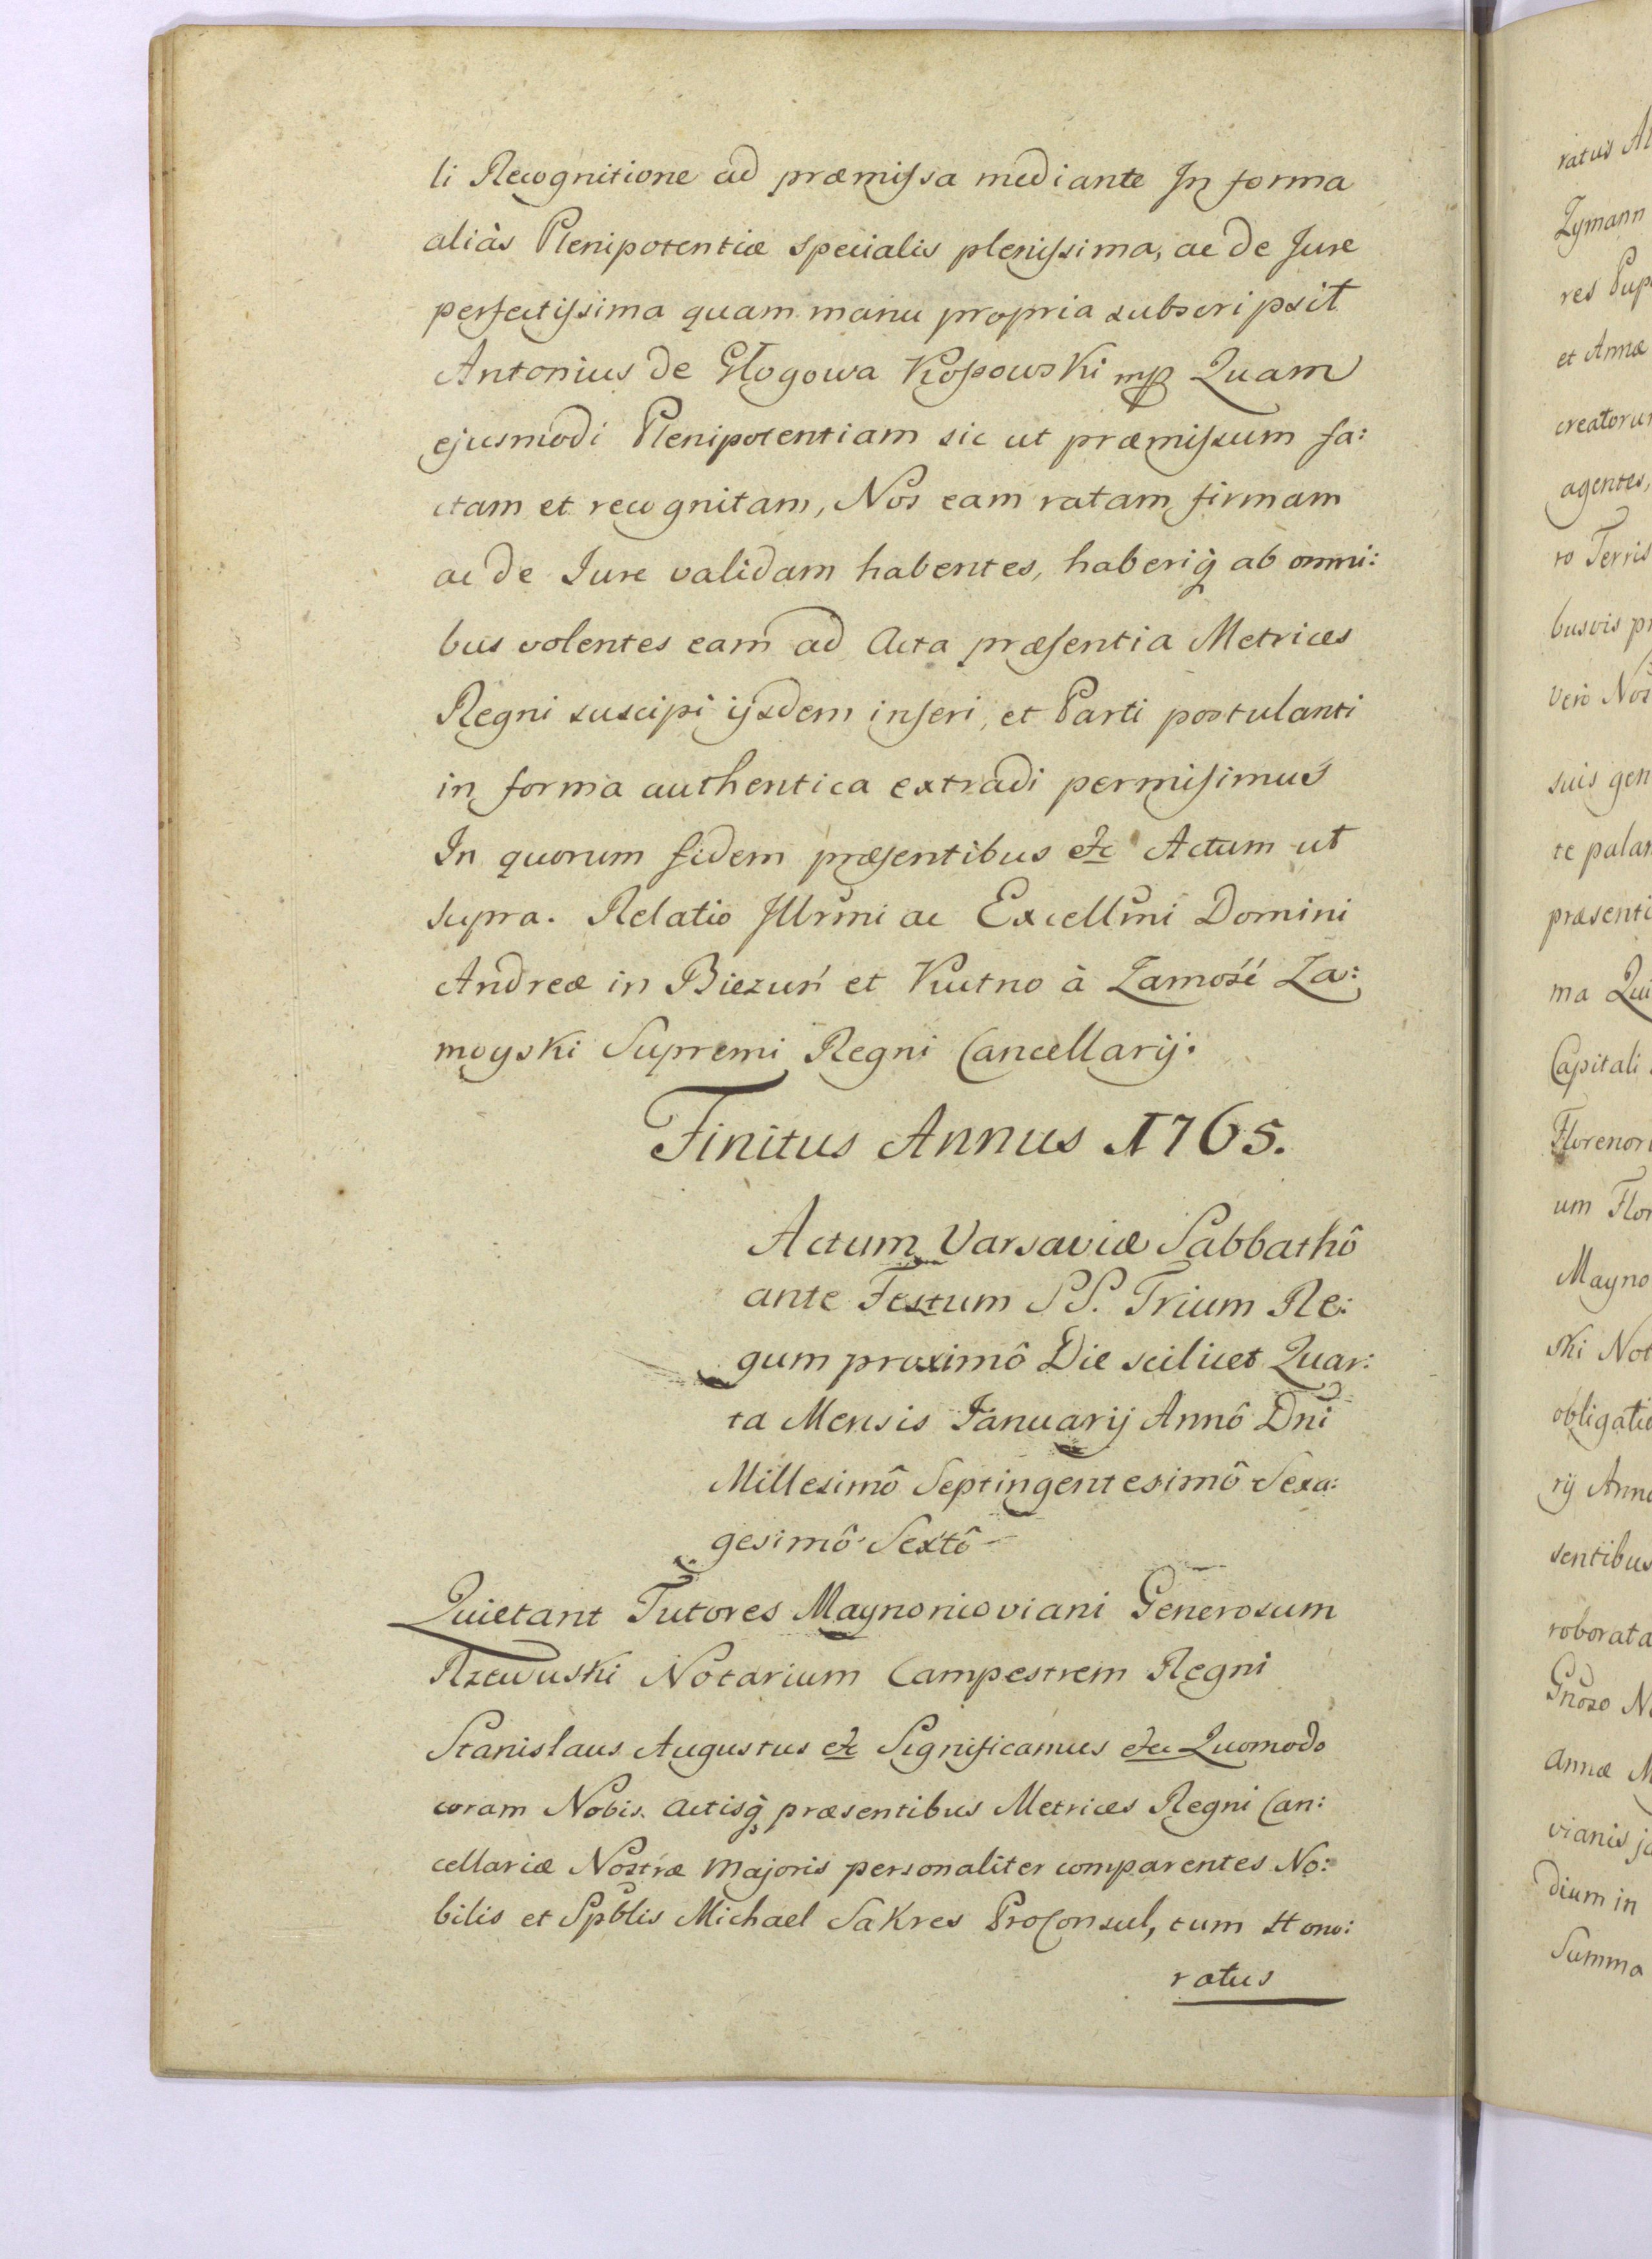 li Recognitione ad præmiſsa mediante In forma
aliàs Plenipotentiæ specialis pleniſsima, ac de Jure
perfectiſsima quam manu propria subscripsit
Antonius de Głogowa Koſsowski mp Quam
ejusmodi Plenipotentiam sic ut præmiſsum fa:
ctam et recognitam, Nos eam ratam firmam
ac de Iure validam habentes, haberiq̀ ab omni:
bus volentes eam ad Acta præſentia Metrices
Regni suscipi ijsdem inſeri, et Parti postulanti
in forma authentica extradi permiſimus
In quorum fidem præſentibus etc Actum ut
supra. Relatio Illrmi ac Excellmi Domini
Andreæ in Biezuń et Kutno à Zamość Za:
moyski Supremi Regni Cancellarij.
Finitus Annus 1765.
Actum Varsaviæ Sabbathô
ante Festum SS. Trium Re:
gum proximô Die scilicet Quar:
ta Mensis Ianuarij Annô Dni
Millesimô Septingentesimô Sexa:
gesimô Sextô
Quietant Tutores Maynonioviani Generosum
Rzewuski Notarium Campestrem Regni
Stanislaus Augustus etc Significamus etc Quomodo
coram Nobis. actisq̀ præsentibus Metrices Regni Can:
cellariæ Nostræ Majoris personaliter comparentes No:
bilis et Spblis Michael Sakres ProConsul, tum Hono:
ratus
ratus
Zymann
res Pup
et Annæ
creatorum
agentes,
ro Terris
busvis
Verò Nos
suis gen
te palam
præsenti
ma Qui
Capitali
Florenor
um Flor
Mayno
ski Not
obligatio
rij Anno
sentibus
roborata
Gnoso
Annæ M
vianis
dium in
Summa